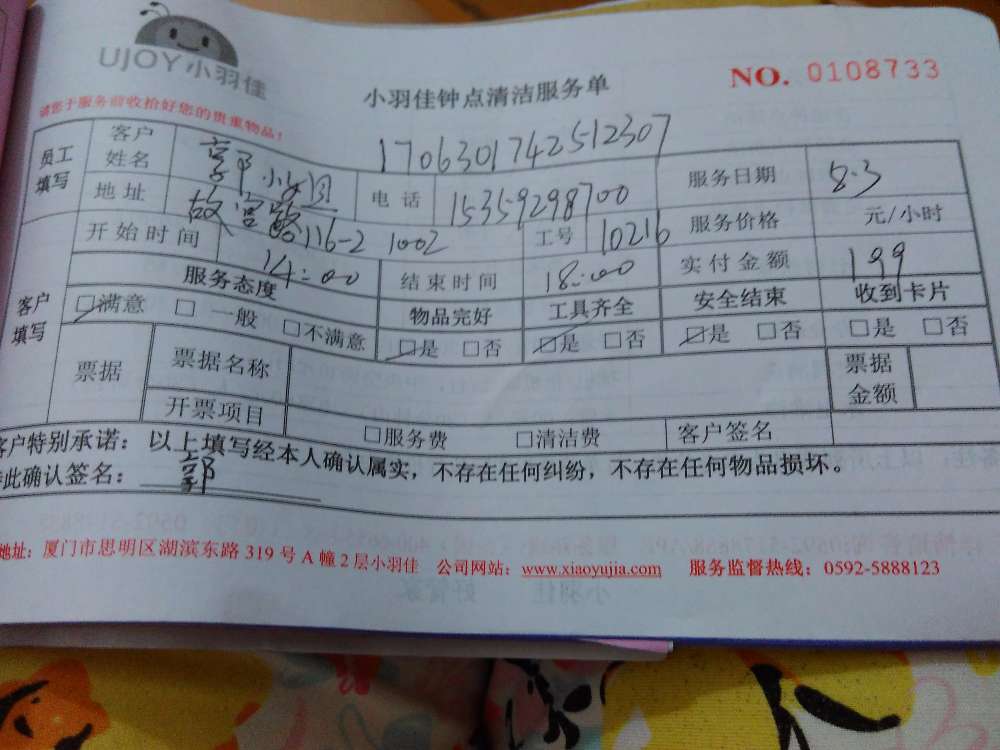 UJOY小羽佳
小羽佳钟点清洁服务单
NO. 0108733
请您于服务前收拾好您的贵重物品!
1706301742512307
员工填写 客户姓名 郭小姐 电话 15359298700 服务日期 8.3
地址 故宫路116-2 1002 工号 10216 服务价格 元/小时
客户填写 开始时间 14:00 结束时间 18:00 实付金额 199
服务态度 物品完好 工具齐全 安全结束 收到卡片
☑满意 □一般 □不满意 ☑是 □否 ☑是 □否 ☑是 □否 □是 □否
票据 票据名称 票据金额
开票项目 □服务费 □清洁费 客户签名
客户特别承诺：以上填写经本人确认属实，不存在任何纠纷，不存在任何物品损坏。
此确认签名： 郭
地址：厦门市思明区湖滨东路 319 号 A 幢 2 层小羽佳 公司网站：www.xiaoyujia.com 服务监督热线：0592-5888123